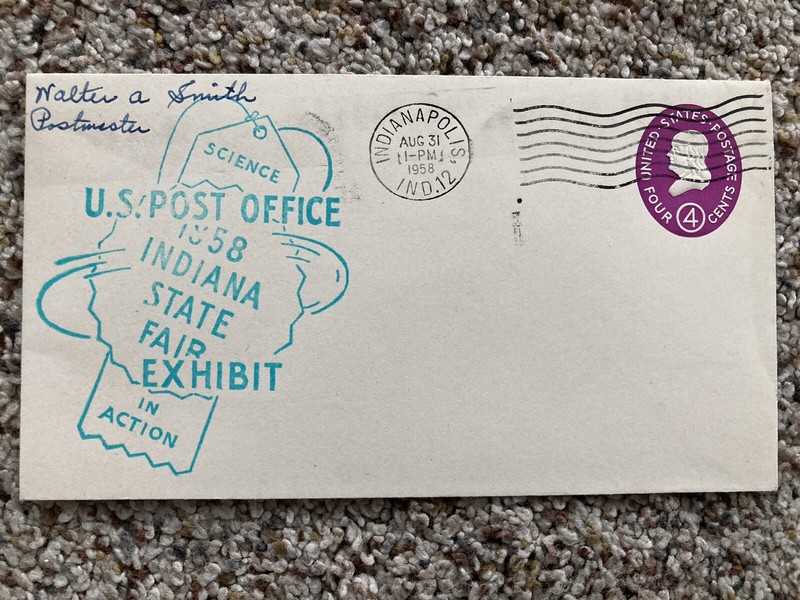 Walter a Smith
Postmaster
SCIENCE
U.S. POST OFFICE
1958
INDIANA
STATE
FAIR
EXHIBIT
IN
ACTION
INDIANAPOLIS,
AUG 31
1-PM
1958
IND. 12
UNITED STATES POSTAGE
FOUR 4 CENTS